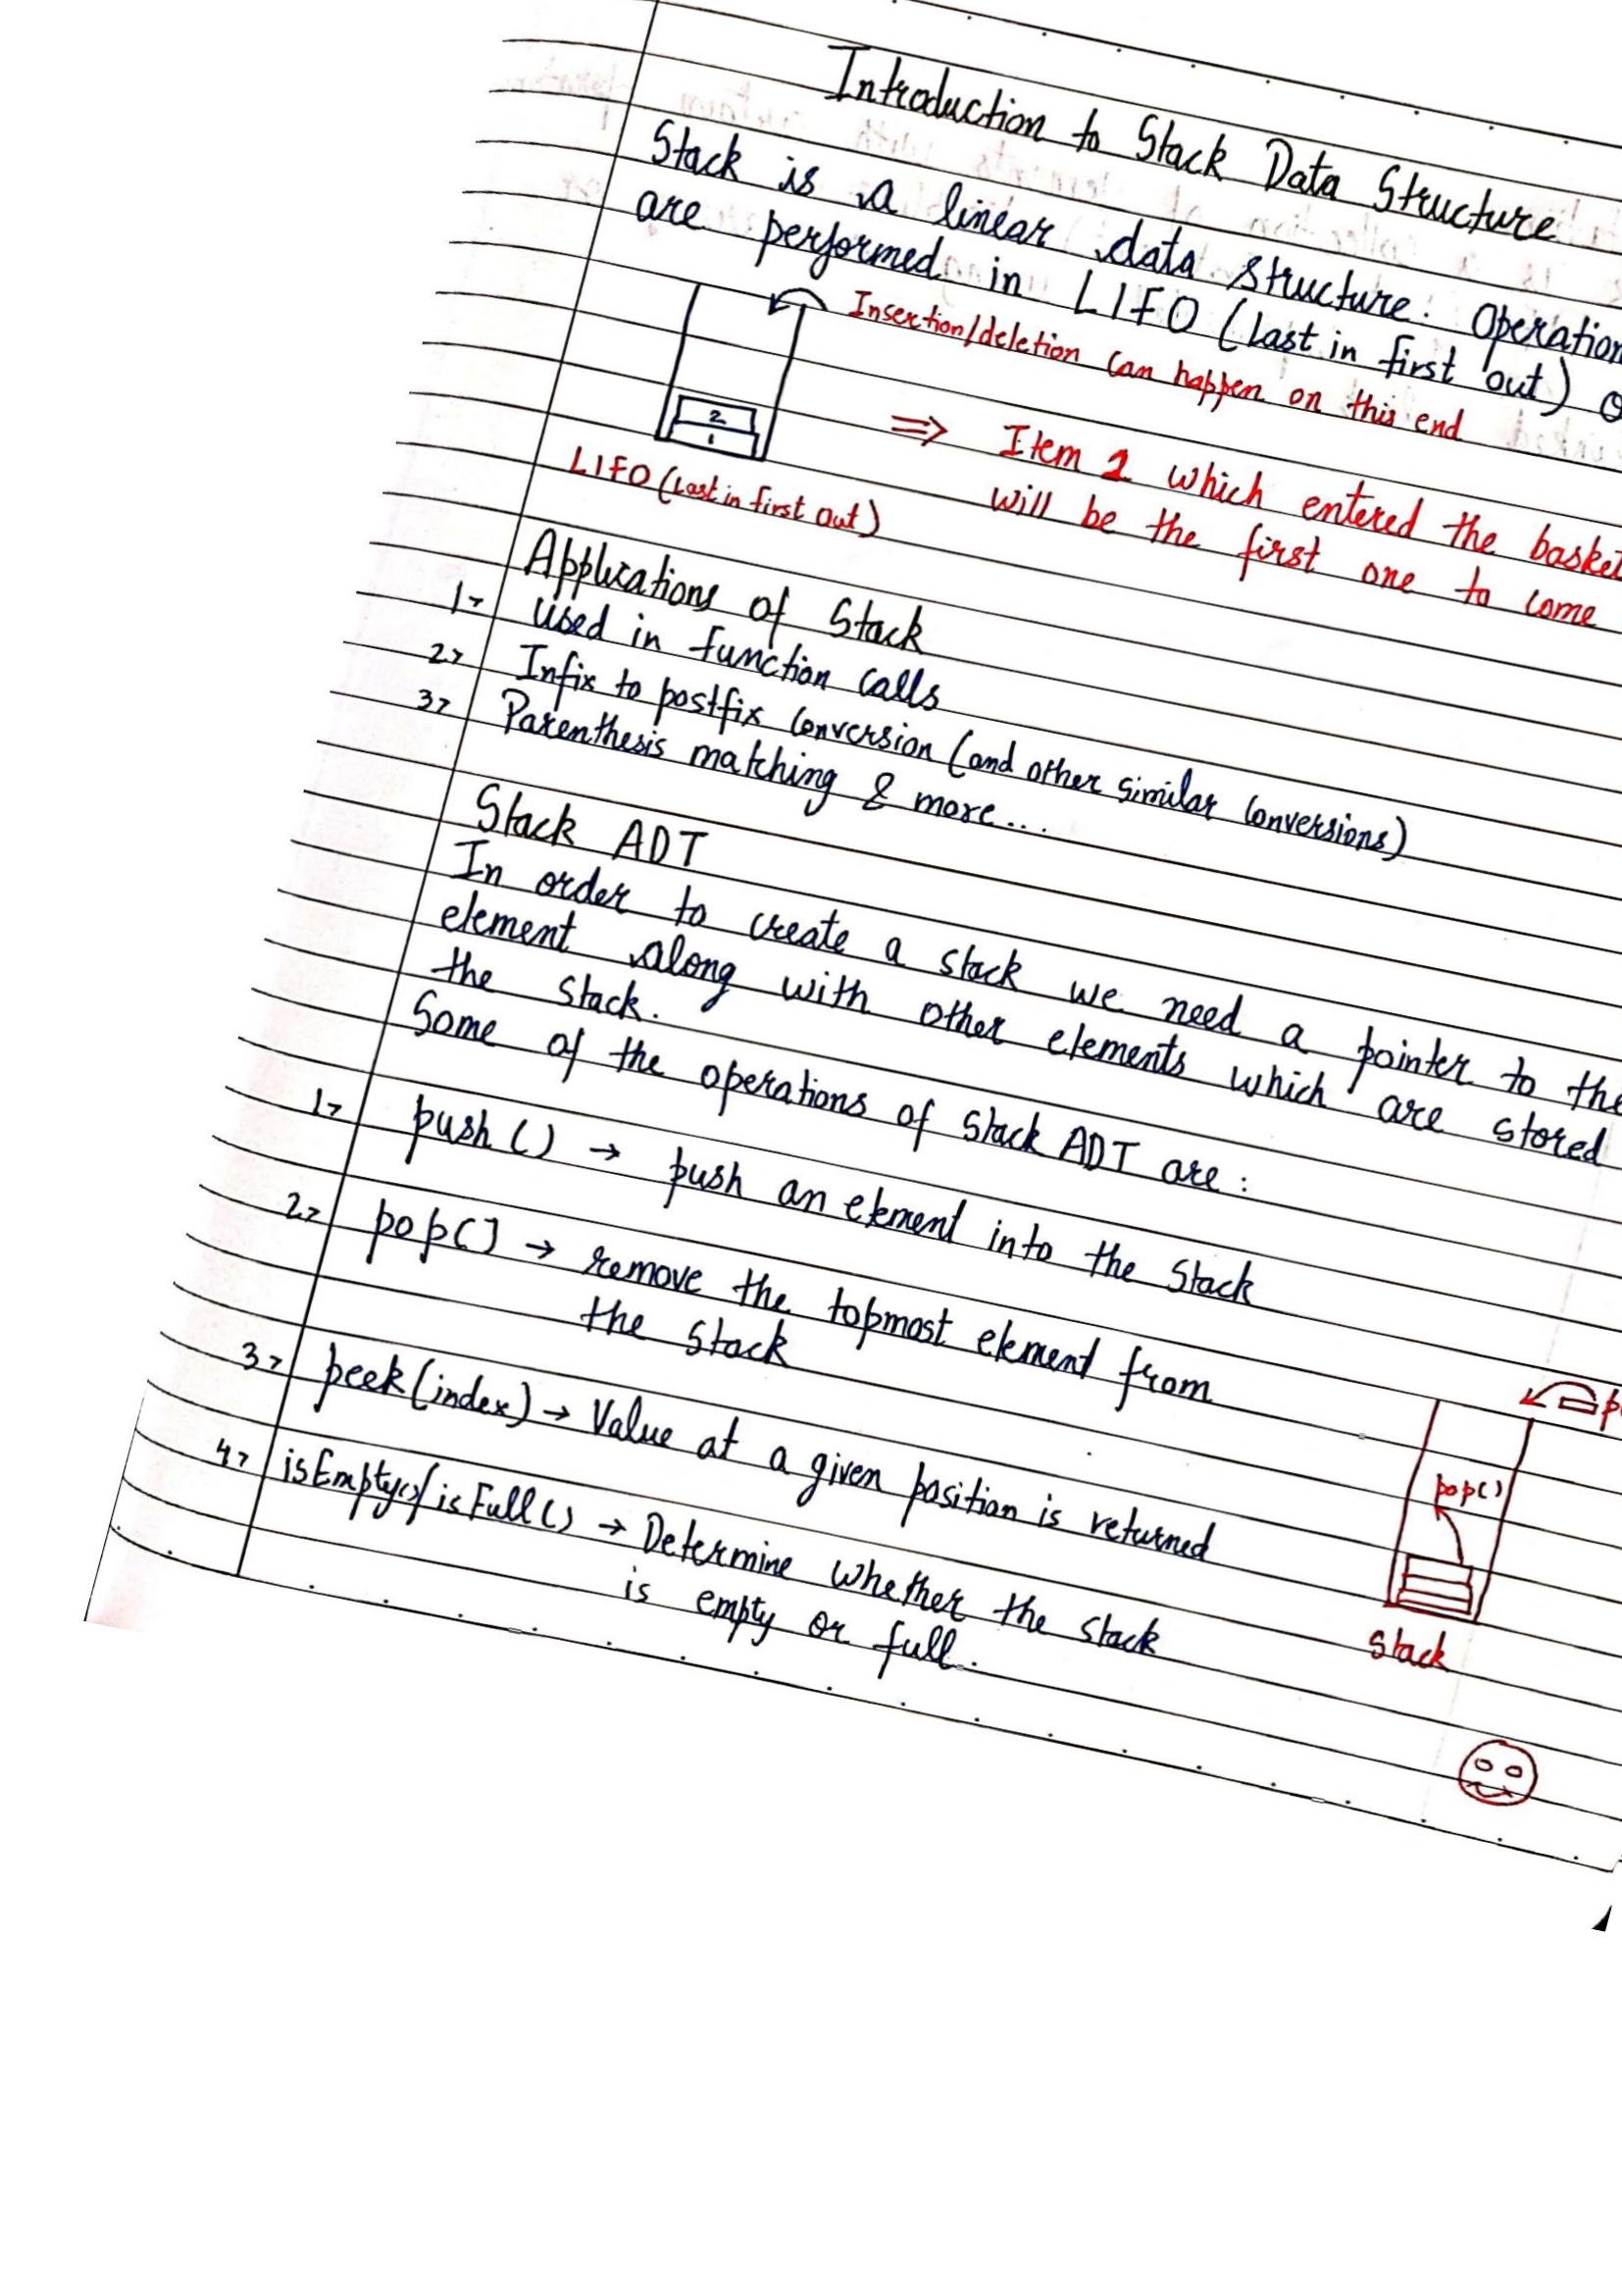 Introduction to Stack Data Structure
Stack is a linear data structure. Operation
are performed in LIFO (Last in first out)
Insertion/deletion can happen on this end
2
1
LIFO (Last in first out)
⇒ Item 2 which entered the basket
will be the first one to come
Applications of Stack
1> Used in function calls
2> Infix to postfix conversion (and other similar conversions)
3> Parenthesis matching & more...
Stack ADT
In order to create a stack we need a pointer to the
element along with other elements which are stored
the stack.
Some of the operations of Stack ADT are :
1> push () → push an element into the Stack
2> pop() → remove the topmost element from
the stack
3> peek (index) → Value at a given position is returned
4> isEmpty()/isFull () → Determine whether the stack
is empty or full.
pop()
Stack